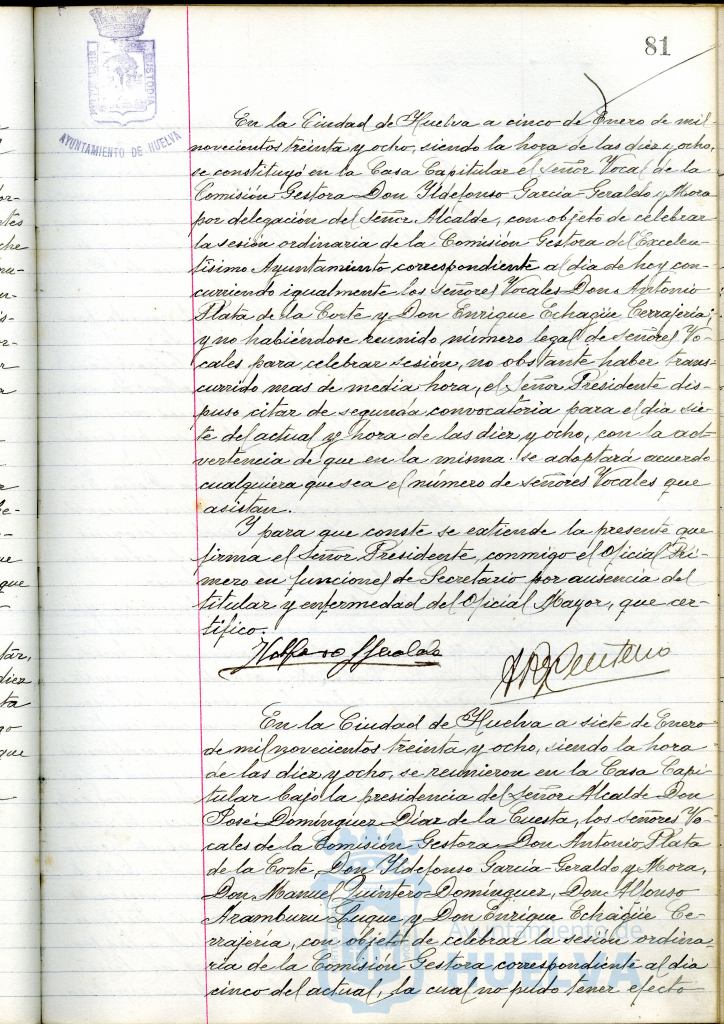 81
AYUNTAMIENTO DE HUELVA
En la Ciudad de Huelva a cinco de Enero de mil
novecientos treinta y ocho, siendo la hora de las diez y ocho,
se constituyó en la Casa Capitular el Señor Vocal de la
Comisión Gestora Don Yldefonso García-Geraldo y Mora
por delegación del Señor Alcalde, con objeto de celebrar
la sesión ordinaria de la Comisión Gestora del Excelen-
tísimo Ayuntamiento correspondiente al día de hoy con-
curriendo igualmente los señores Vocales Don Antonio
Plata de la Corte y Don Enrique Echagüe Cerrajería;
y no habiéndose reunido número legal de señores Vo-
cales para celebrar sesión, no obstante haber trans-
currido mas de media hora, el Señor Presidente dis-
puso citar de segunda convocatoria para el día sie-
te del actual y hora de las diez y ocho, con la ad-
vertencia de que en la misma se adoptará acuerdo
cualquiera que sea el número de señores Vocales que
asistan.
Y para que conste se extiende la presente que
firma el Señor Presidente, conmigo el Oficial Pri-
mero en funciones de Secretario por ausencia del
titular y enfermedad del Oficial Mayor, que cer-
tifico.
En la Ciudad de Huelva a siete de Enero
de mil novecientos treinta y ocho, siendo la hora
de las diez y ocho, se reunieron en la Casa Capi-
tular bajo la presidencia del Señor Alcalde Don
José Domínguez Díaz de la Cuesta, los señores Vo-
cales de la Comisión Gestora Don Antonio Plata
de la Corte, Don Yldefonso García-Geraldo y Mora,
Don Manuel Quintero Domínguez, Don Alonso
Aramburu Luque y Don Enrique Echagüe Ce-
rrajería, con objeto de celebrar la sesión ordina-
ria de la Comisión Gestora correspondiente al día
cinco del actual, la cual no pudo tener efecto
Ayuntamiento de
HUELVA